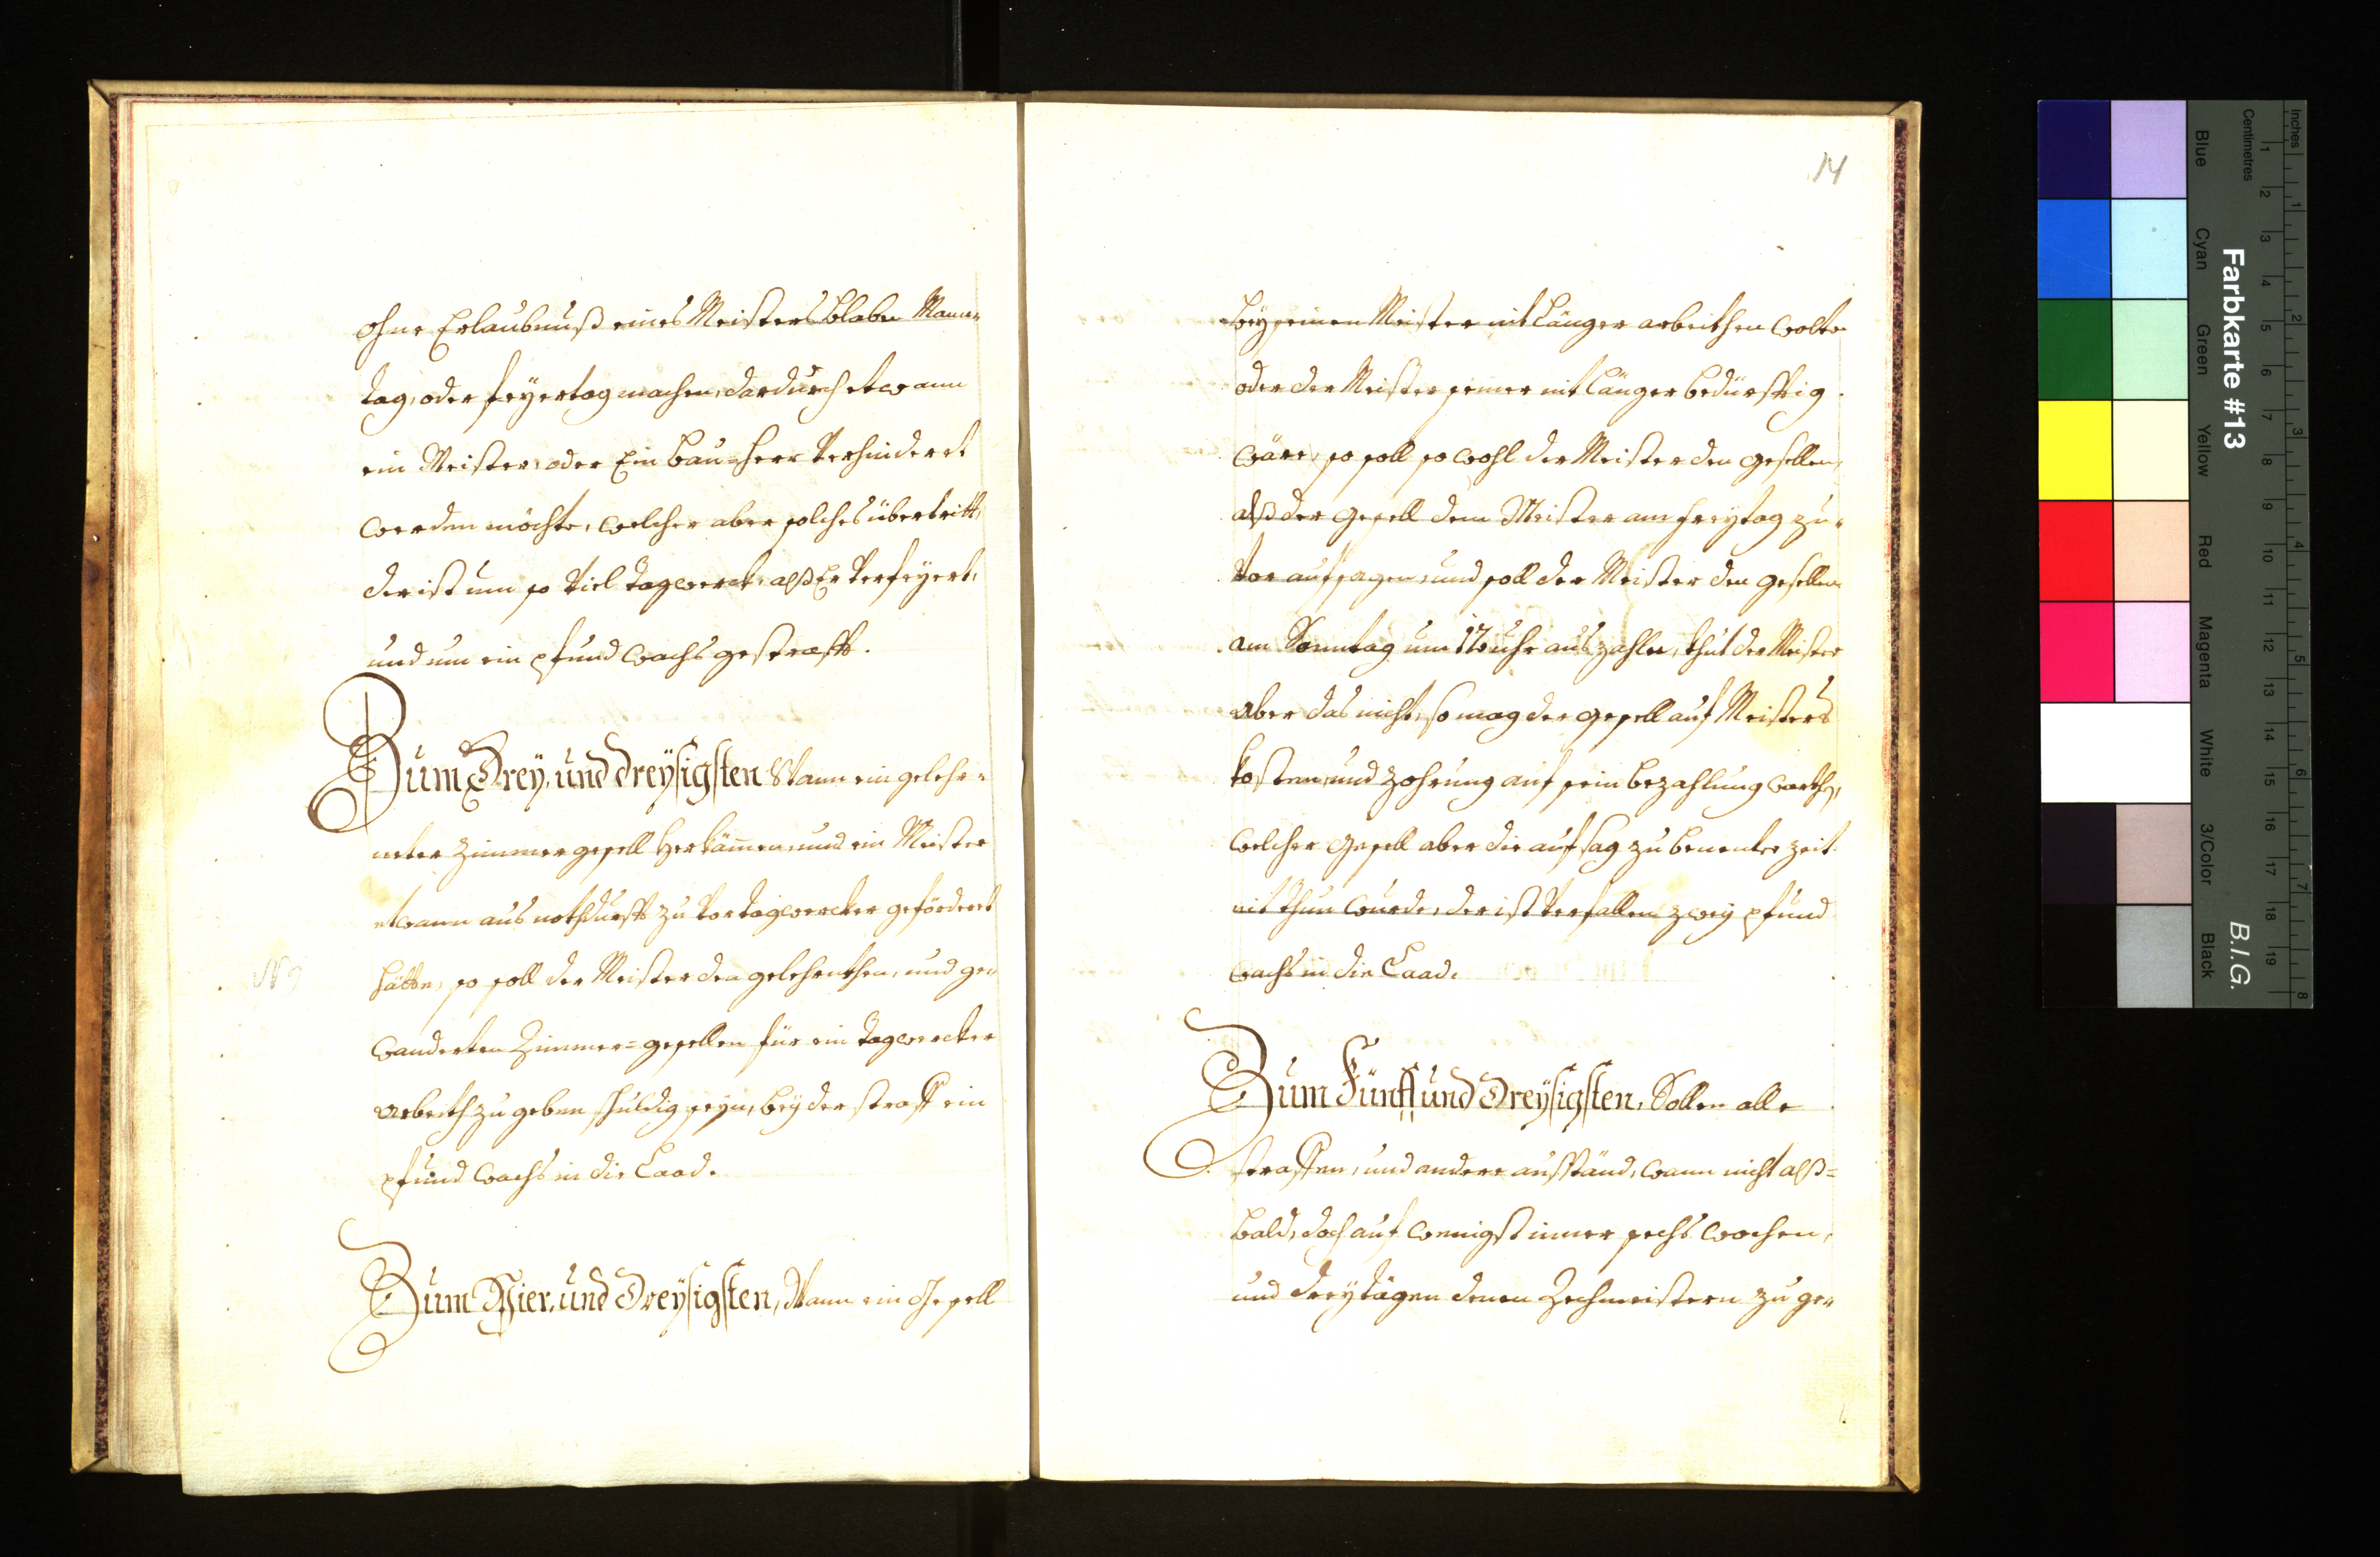 ohne Erlaubnuß eines Meisters blaben Mann-
tag, oder feyertag machen, dardurch etwann
ein Meister, oder Ein bau-herr verhinderet
werden möchte, welcher aber solches übertritt,
der ist um so viel tagwerck, alß Er verfeyert,
und um ein pfund wachs gestrafft.
Zum Drey, und dreysigsten Wann ein geleher-
neter Zimmer gesell herkäme, und ein Meister
etwann aus nothdurfft zu vor tagwercker geförderet
hätte, so soll der Meister den gelehrnthen, und ge-
wanderten Zimmer=gesellen für ein tagwercker
arbeith zu geben schuldig seyn, bey der straff ein
pfund wachs in die Laad.
Zum Vier, und Dreysigsten, Wann ein Gesell
14
bey seinen Meister nit länger arbeithen wolte
oder der Meister seiner nit länger bedürfftig
wäre, so soll so wohl der Meister den gesellen,
alß der gesell dem Meister am freytag zu-
vor aufsagen, und soll der Meister den gesellen
am Sonntag um 12 uhr aus zahlen, thut der Meister
aber das nicht, so mag der gesell auf Meisters
kosten, und zehrung auf sein bezahlung warthen,
welcher gesell aber die aufsag zu benenter zeit
nit thun wurde, der ist verfallen zwey pfund
wachs in die Laad.
Zum Fünff und Dreysigsten, Sollen alle
straffen, und andere ausständ, wann nicht alß=
bald, doch auf wenigst inner sechs wochen,
und drey tägen denen Zechmeistern zu ge-